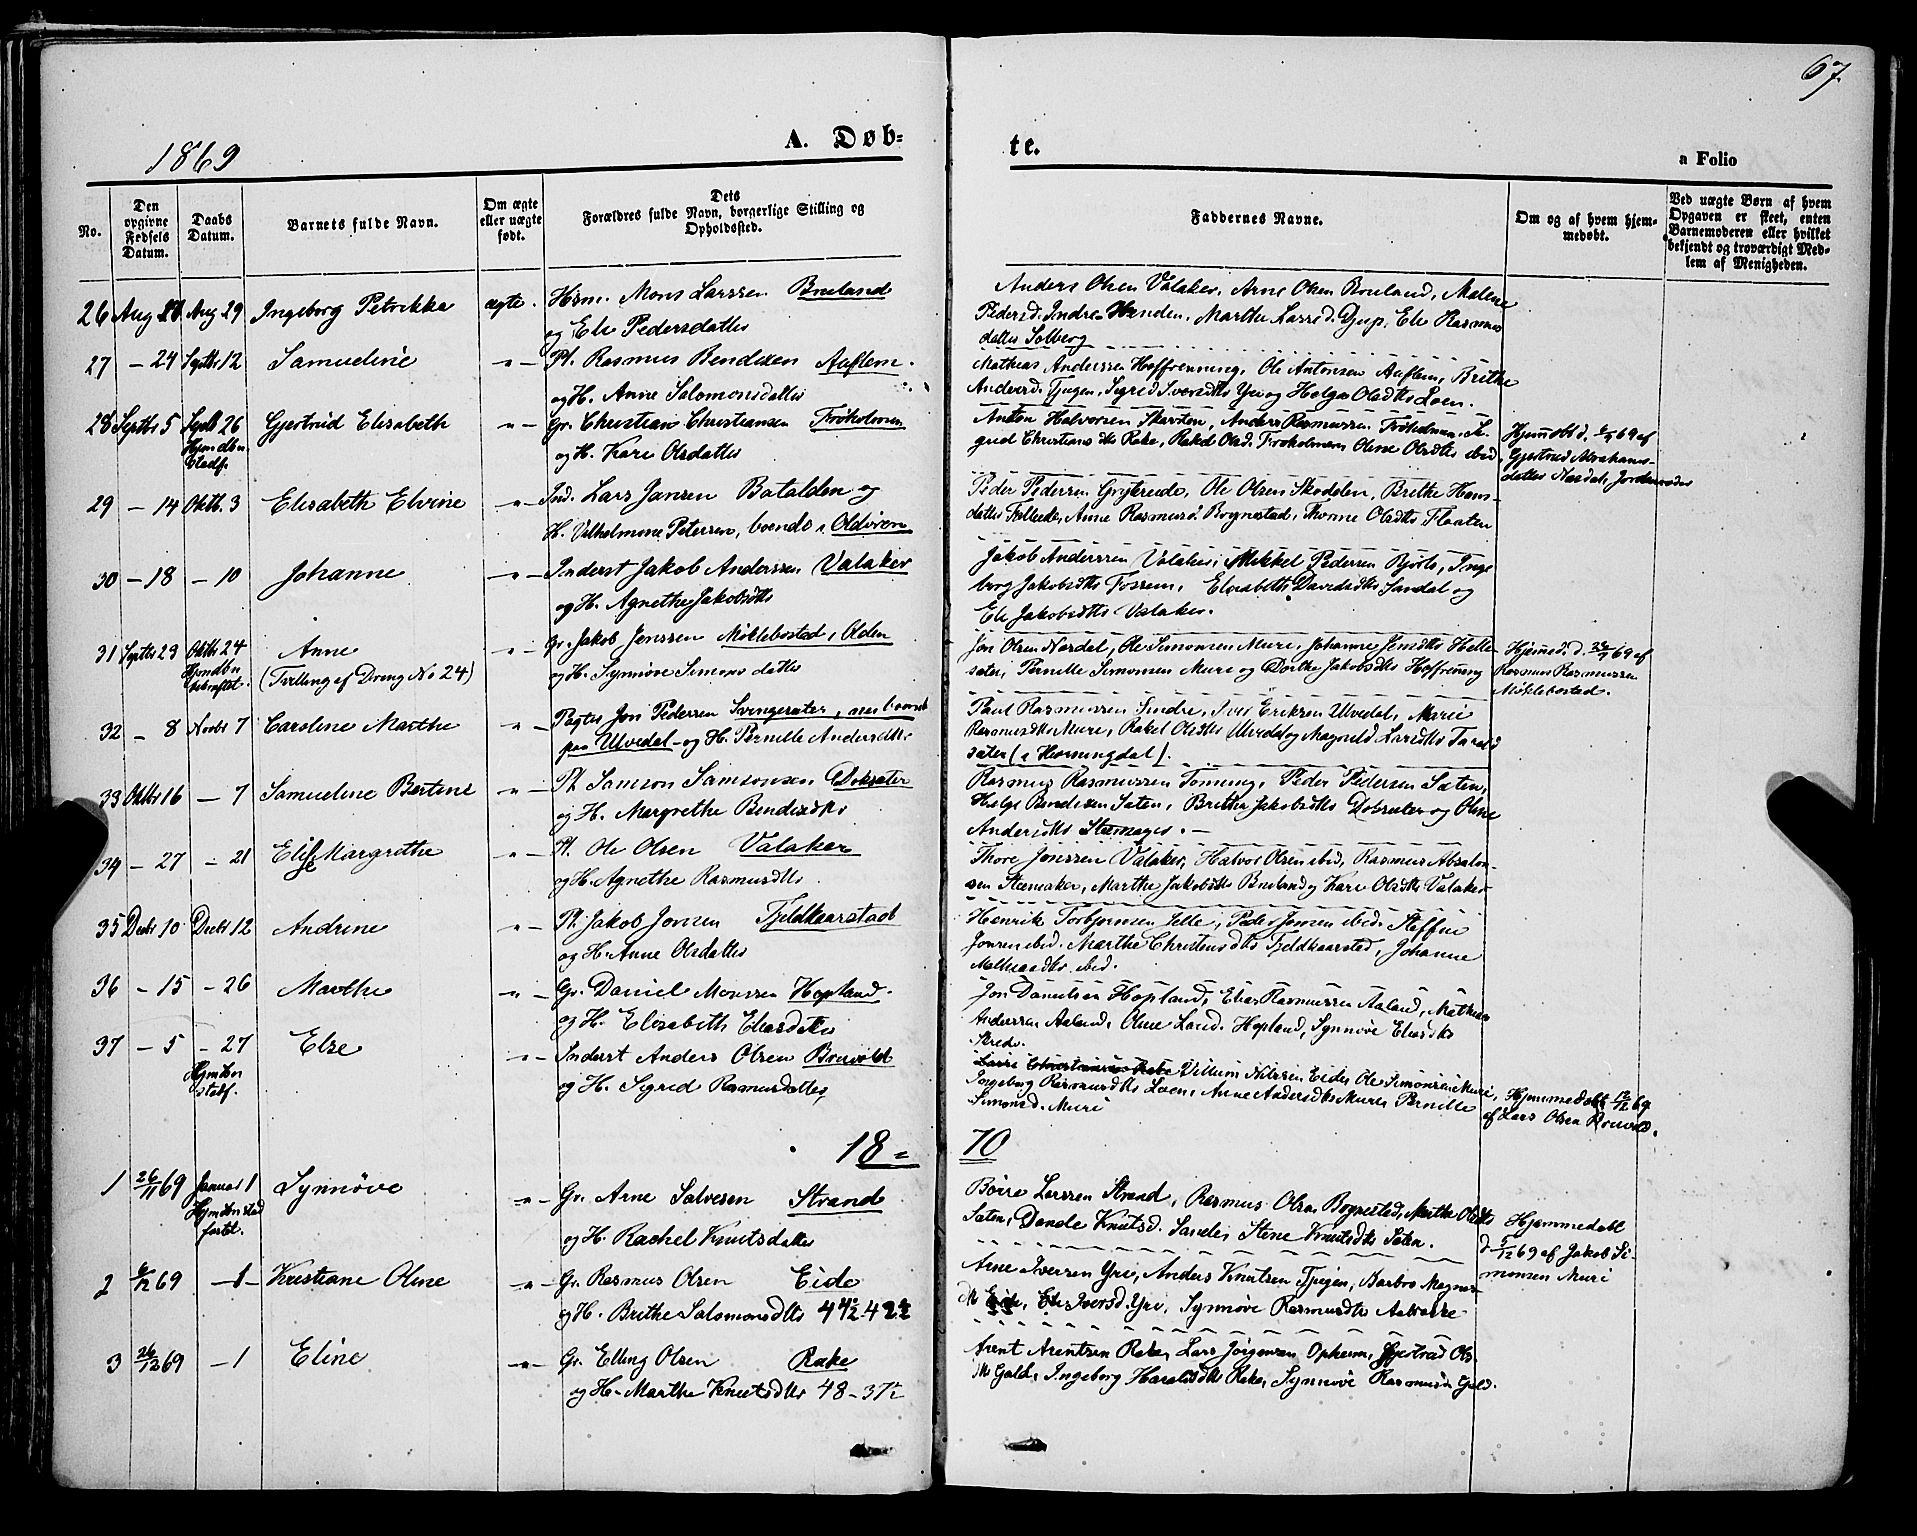 67.
1869
A. Døb-
te.
a Folio
No.
Den opgivne Fødsels Datum.
Daabs Datum.
Barnets fulde Navn.
Om ægte eller uægte født.
Dets Forældres fulde Navn, borgerlige Stilling og Opholdssted.
Faddernes Navne.
Om og af hvem hjemmedøbt.
Ved uægte Børn af hvem Opgaven er skeet, enten Barnemoderen eller hvilket bekjendt og troværdigt Medlem af Menigheden.
26 Aug Aug 29 Ingeborg Petrikka ægte. Hsm. Mons Larssen Bruland
og Eli Pedersdatter
Anders Olsen Valaker, Arne Olsen Bruland, Malene
Pedersd. Indre Hunden, Marthe Larsd. Djup, Eli Rasmus
datter Solberg
27 – 24 Septbr 12 Samueline –"– Pt. Rasmus Bendixen Auflem.
og H. Anne Salomonsdatter
Mathias Anderssen Hoffrenning, Ole Antonsen Auflem, Brithe
Andersd. Tjugen, Sigrid Iversdtr Yri og Helga Olsdtr Loen.
28 Septbr 5 Septb 26 Gjertrud Elisabeth –"– Gr. Christian Christiansen Frøholmen
Hjemdbn Stadf.
og H. Kari Olsdatter
Anton Halvorsen Skarsten, Anders Rasmussen Frøholmen, Si-
grid Christiansdtr Rake, Rakel Olsd. Frøholmen, Oline Olsdtr ibid.
Hjemdøbt d. 6/9 69 af
Gjertrud Abrahams-
datter Nordal, Jordemoder
29 – 14 Oktb. 3 Elisabeth Elvine –"– Ind. Lars Jansen Batalden og
H. Vilhelmine Petersen, boende i Oldøren
Peder Pedersen Gryteeide, Ole Olsen Skodalen, Brithe Hans-
datter Felleide, Anne Rasmusd. Bognestad, Thorine Olsdtr Flaaten
30 – 18 – 10 Johanne –"– Inderst Jakob Anderssen Valaker
og H. Agnethe Jakobsdtr
Jakob Anderssen Valaker, Mikkel Pedersen Bjørlo, Inge
borg Jakobsdtr Fossem, Elisabeth Davidsdtr Sandal og
Eli Jakobsdtr Valaker.
31 Septbr 23 Oktbr 24 Anne –"– Gr. Jakob Jenssen Møklebostad, Olden
Hjemdbn bekræftet.
(Tvilling af Dreng No 24)
og H. Synnøve Simonsdatter
Jon Olsen Nordal, Ole Simonsen Muri, Johanne Jensdtr Helle
sæter, Pernille Simonsen Muri og Dorthe Jakobsdtr Hoffrenning
Hjemd. d. 23/9 69 af
Rasmus Rasmussen
Møklebostad.
32 – 8 Novbr 7 Caroline Marthe –"– Pagter Jon Pedersen Svingesæter, nu boende
paa Ulvedal og H. Pernille Andersdtr
Paul Rasmussen Sindre, Iver Eriksen Ulvedal, Marie
Rasmusdtr Muri, Rakel Olsdtr Ulvedal og Magnild Larsdtr Tarald
sæter (i Hornungdal).
33 Oktbr 16 – 7 Samueline Bertine –"– Pt. Samson Samsonsen Dokseter
og H. Margrethe Bendixdtr
Rasmus Rasmussen Tonning, Peder Pedersen Sæten,
Helge Bendixen Sæten, Brithe Jakobsdtr Dokseter og Oline
Andersdtr
34 – 27 – 21 Elise Margrethe –"– Pt. Ole Olsen Valaker
og H. Agnethe Rasmusdtr
Thore Jonssen Valaker, Halvor Olsen ibid, Rasmus Absalon-
sen Steenaker, Marthe Jakobsdtr Bruland og Kari Olsdtr Valaker
35 Decbr 10 Decbr 12 Andrine –"– Pt. Jakob Jonsen Fjeldkaarstad
og H. Anne Olsdatter
Henrik Torbjørnsen Jelle, Peder Jonsen ibid. Steffen
Jonsen ibid. Marthe Christensdtr Fjeldkaarstad, Johanne
ibid.
36 – 15 – 26 Marthe –"– Gr. Daniel Monssen Hopland.
og H. Elisabeth Eliasdatter
Jon Danielsen Hopland, Elias Rasmussen Aaland, Mathias
Anderssen Aaland, Oline Hopland, Synnøve Eliasdtr
Skrede.
37 – 5 – 27 Else –"– Inderst Anders Olsen Bruvold
Hjmdbn stadf.
og H. Sigrid Rasmusdatter,
Villum Nilssen Eide, Ole Simonsen Muri,
Ingeborg Rasmusdtr Loen, Anne Andersdtr Muri, Pernille
Simonsd. Muri
Hjemmedøbt 12/12 69
af Lars Olsen Bruvold.
18=
70
1 26/11 69 Januar 1 Synnøve –"– Gr. Arne Salvesen Strand
Hjmdbn stad festet.
og H. Rachel Knutsdatter
Børre Larssen Strand, Rasmus Olsen Bognestad, Marthe Olsdtr
Sæten, Danele Knutsd. Sande, Stene Knutsdtr Sæten.
Hjemmedøbt
d 5/12 69 af Jakob Si-
monsen Muri
2 6/12 69 –1– Kristiane Oline –"– Gr. Rasmus Olsen Eide
og H. Brithe Salomonsdtr
Arne Iverssen Yri, Anders Knutsen Tjugen, Barbro Magnus-
dtr Eide, Eli Iversd. Yri, Synnøve Rasmusdtr
3 26/12 69 –1 Eline –"– Gr. Elling Olsen Rake
og H. Marthe Knutsdtr 48 – 37½
Arent Arentsen Rake, Lars Jørgensen Opheim, Gjertrud Ols-
dtr Gald, Ingeborg Haraldsdtr Rake, Synnøve Rasmusd. Gjeld.